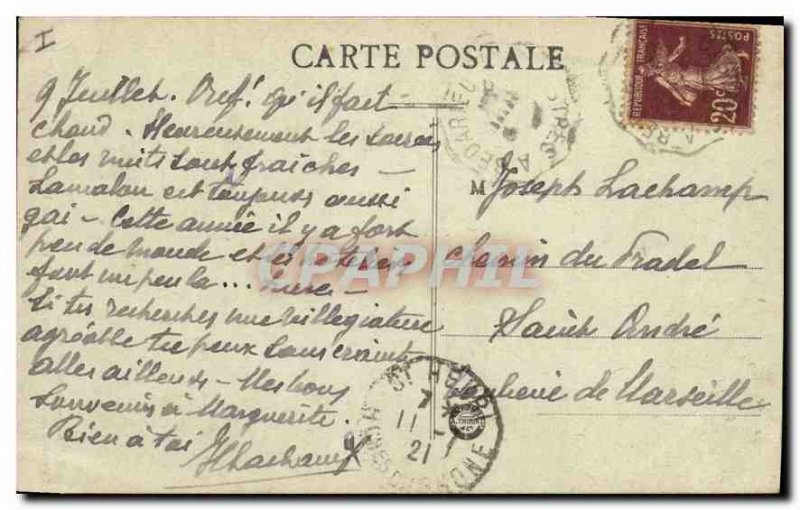 I
CARTE POSTALE
9 Juillet. Ouf! qu'il fait
chaud. Heureusement les soirées
et les nuits sont fraîches —
Lamalou est toujours aussi
gai — Cette année il y a fort
peu de monde et les hôtels
font un peu la ...
Si tu recherches une villégiature
agréable tu peux sans crainte
aller ailleurs — Mes bons
souvenirs à Marguerite.
Bien à toi
Lachamp
M Joseph Lachamp
Chemin du Pradel
Saint André
banlieue de Marseille
REPUBLIQUE FRANÇAISE
POSTES
20c
BEDARIEUX
A
CASTRES
7
11 -
21
RHONE
CPAPHIL